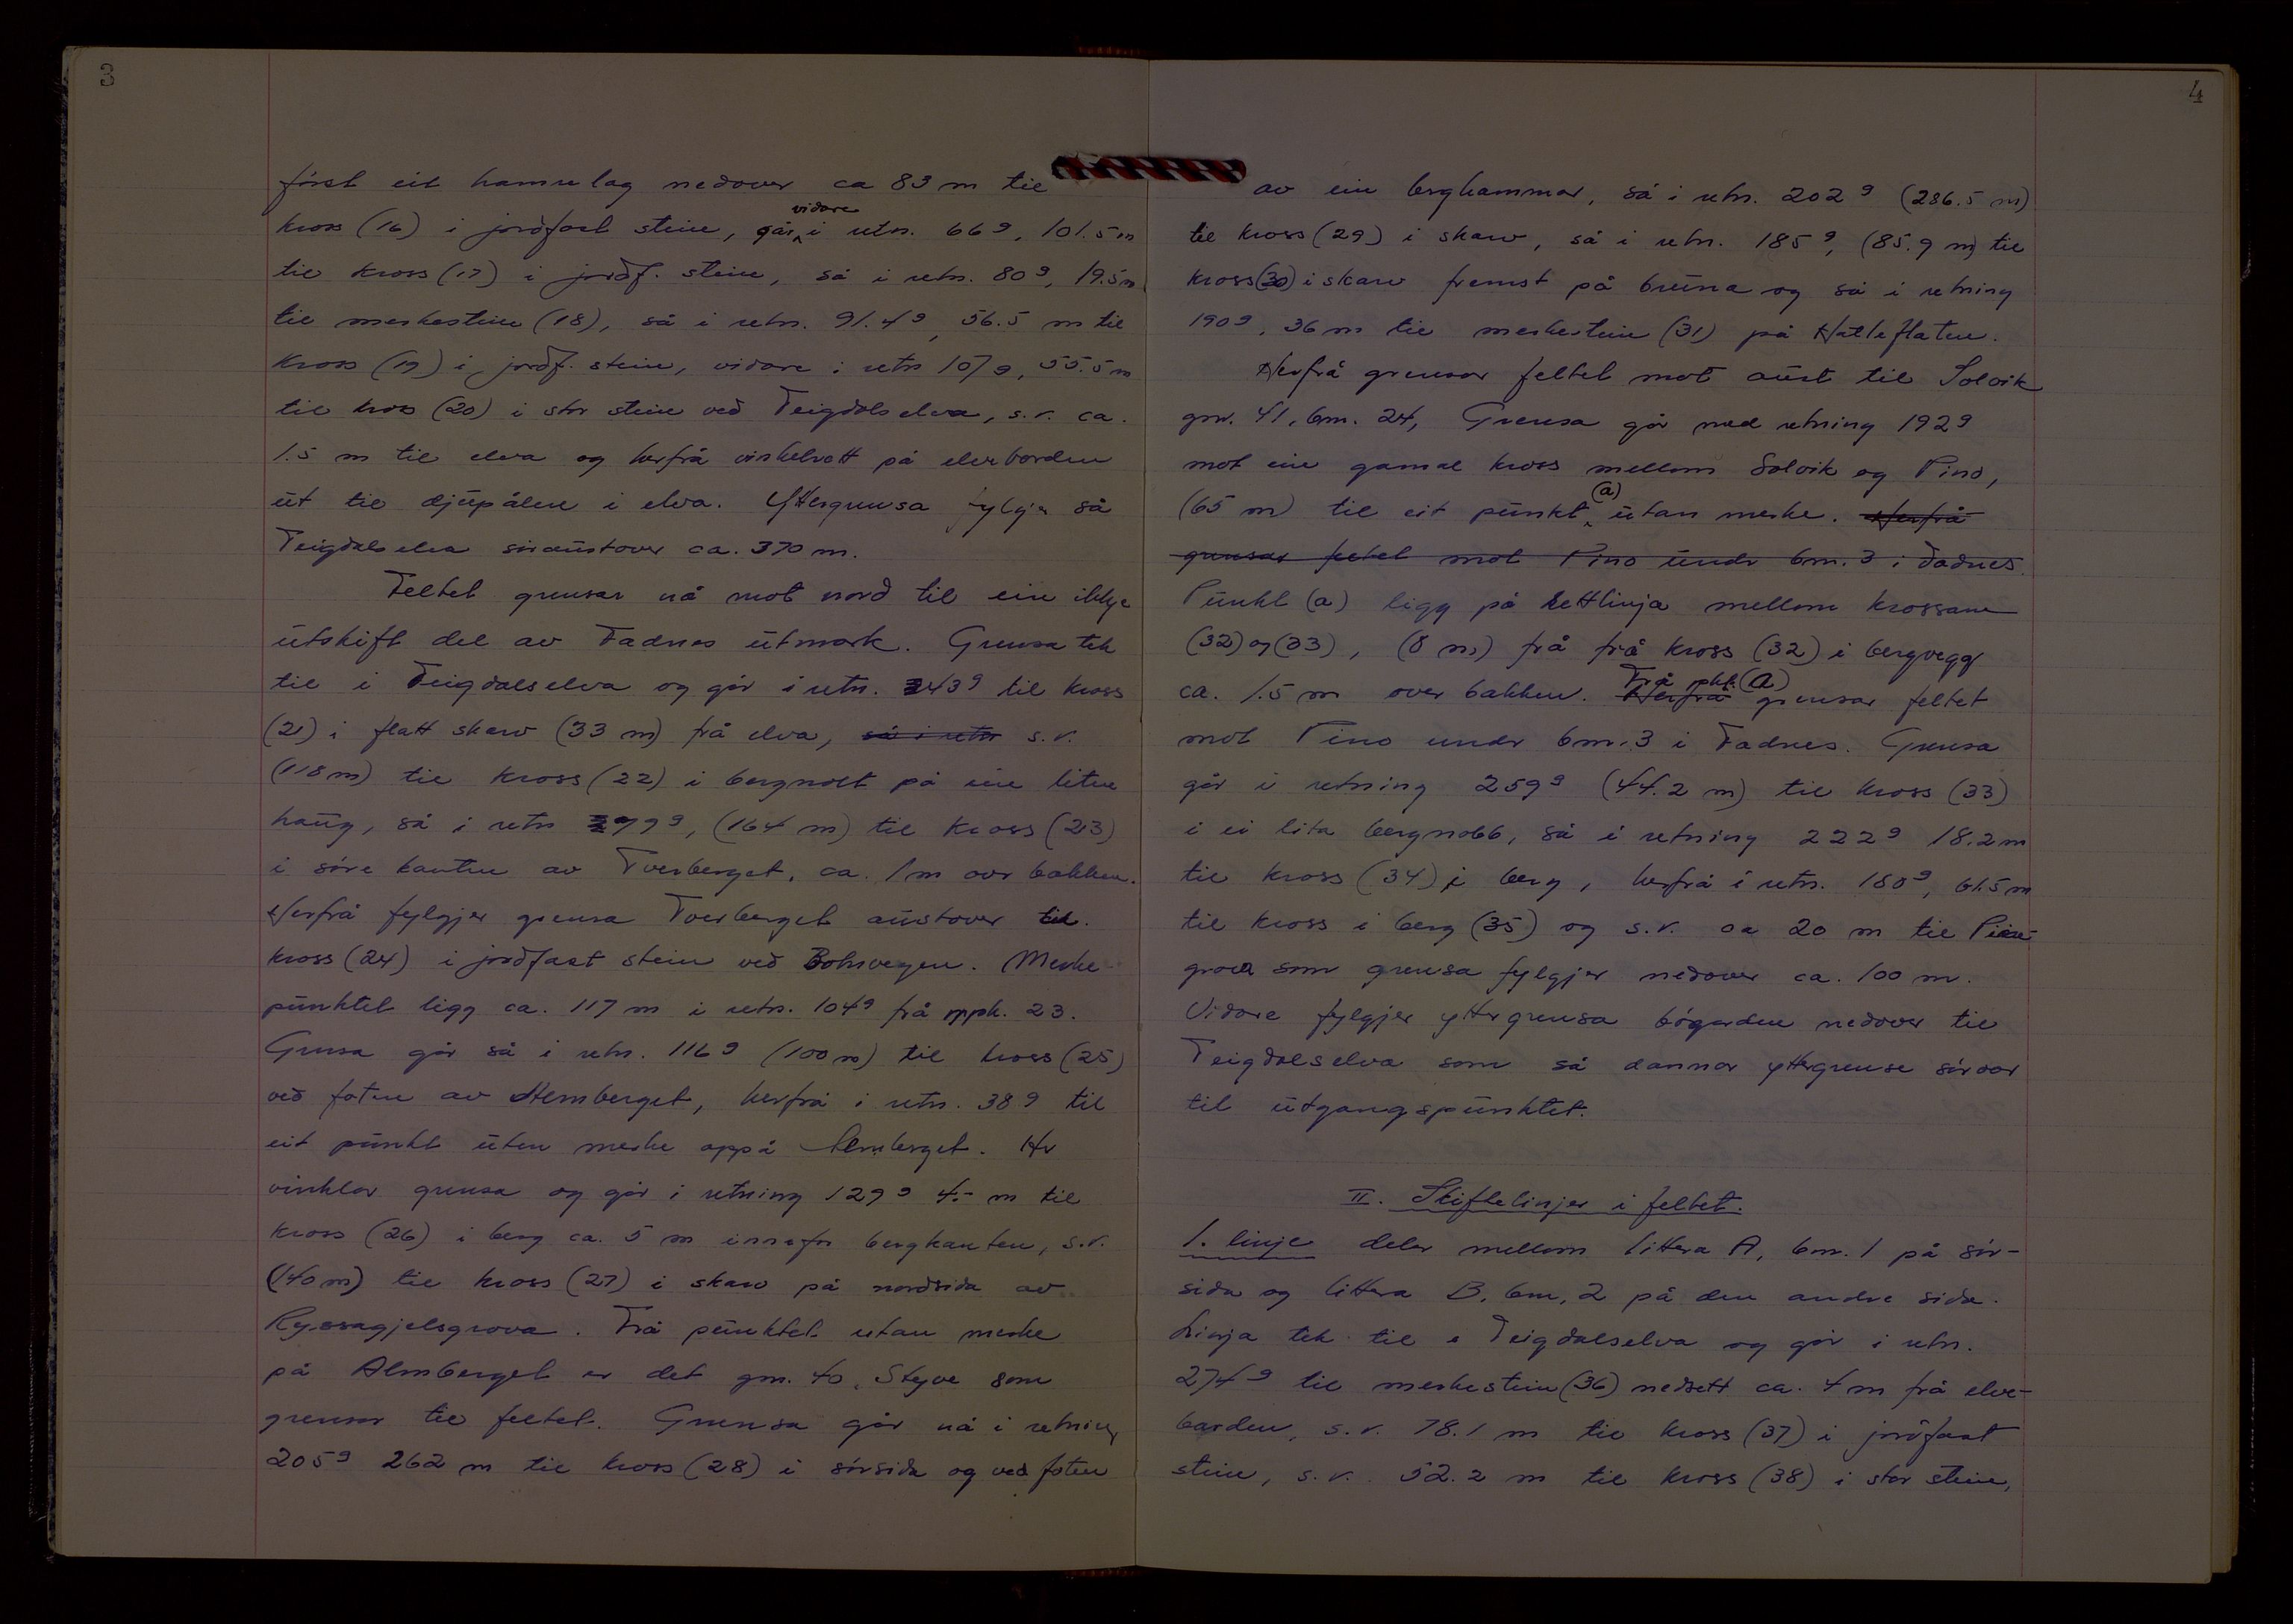 3
først eit hamrelag nedover ca 83 m til
kross (16) i jordfast stein, går vidare i retn. 66g, 101.5 m
til kross (17) i jordf. stein, så i retn. 80g, 19.5 m
til merkestein (18), så i retn. 91.4g, 56.5 m til
kross (19) i jordf. stein, vidare i retn 107g, 55.5 m
til kross (20) i stor stein ved Teigdalselva, s.r. ca.
1.5 m til elva og herfrå vinkelrett på elvebarden
ut til djupålen i elva. Yttergrensa fylgjer så
Teigdalselva søraustover ca. 370 m.
Feltet grensar nå mot nord til ein ikkje
utskift del av Fadnes utmark. Grensa tek
til i Teigdalselva og går i retn. 243g til kross
(21) i flatt skarv (33 m) frå elva, så i retn s.r.
(118 m) til kross (22) i bergnott på ein liten
haug, så i retn 99g, (164 m) til kross (23)
i søre kanten av Tverberget, ca. 1 m over bakken.
Herfrå fylgjer grensa Tverberget austover til
kross (24) i jordfast stein ved Bohrvegen. Merke-
punktet ligg ca. 117 m i retn. 104g frå mpk. 23.
Grensa går så i retn. 116g (100 m) til kross (25)
ved foten av Almberget, herfrå i retn. 38g til
eit punkt uten merke oppå Almberget. Her
vinklar grensa og går i retning 129g 4.- m til
kross (26) i berg ca. 5 m innafor bergkanten, s.r.
(140 m) til kross (27) i skarv på nordsida av
Ryssagjelsgrova. Frå punktet utan merke
på Almberget er det gnr. 40, Styve som
grensar til feltet. Grensa går nå i retning
205g 262 m til kross (28) i sørsida og ved foten
4
av ein berghammar, så i retn. 202g (286.5 m)
til kross (29) i skarv, så i retn. 185g, (85.9 m) til
kross (30) i skarv fremst på bruna og så i retning
190g, 36 m til merkestein (31) på Hatleflaten.
Herfrå grensar feltet mot aust til Solvik
gnr. 41, bnr. 24, Grensa går med retning 192g
mot ein gamal kross mellom Solvik og Tino,
(65 m) til eit punkt (a) utan merke. Herfrå
grensar feltet mot Tino under bnr. 3 i Fadnes.
Punkt (a) ligg på rettlinja mellom krossane
(32) og (33), (8 m) frå frå kross (32) i bergvegg
ca. 1.5 m over bakken. Herfrå Frå pkt. (a) grensar feltet
mot Tino under bnr. 3 i Fadnes. Grensa
går i retning 259g (44.2 m) til kross (33)
i ei lita bergnobb, så i retning 222g 18.2 m
til kross (34) i berg, herfrå i retn. 180g, 61.5 m
til kross i berg (35) og s.r. ca 20 m til
grova som grensa fylgjer nedover ca. 100 m.
Vidare fylgjer yttergrensa bøgarden nedover til
Teigdalselva som så dannar yttergrense sørover
til utgangspunktet.
II. Skiftelinjer i feltet.
1. linje deler mellom littera A, bnr. 1 på sør-
sida og littera B, bnr. 2 på den andre sida.
Linja tek til i Teigdalselva og går i retn.
274g til merkestein (36) nedsett ca. 4 m frå elve-
barden, s.r. 78.1 m til kross (37) i jordfast
stein, s.r. 52.2 m til kross (38) i stor stein,